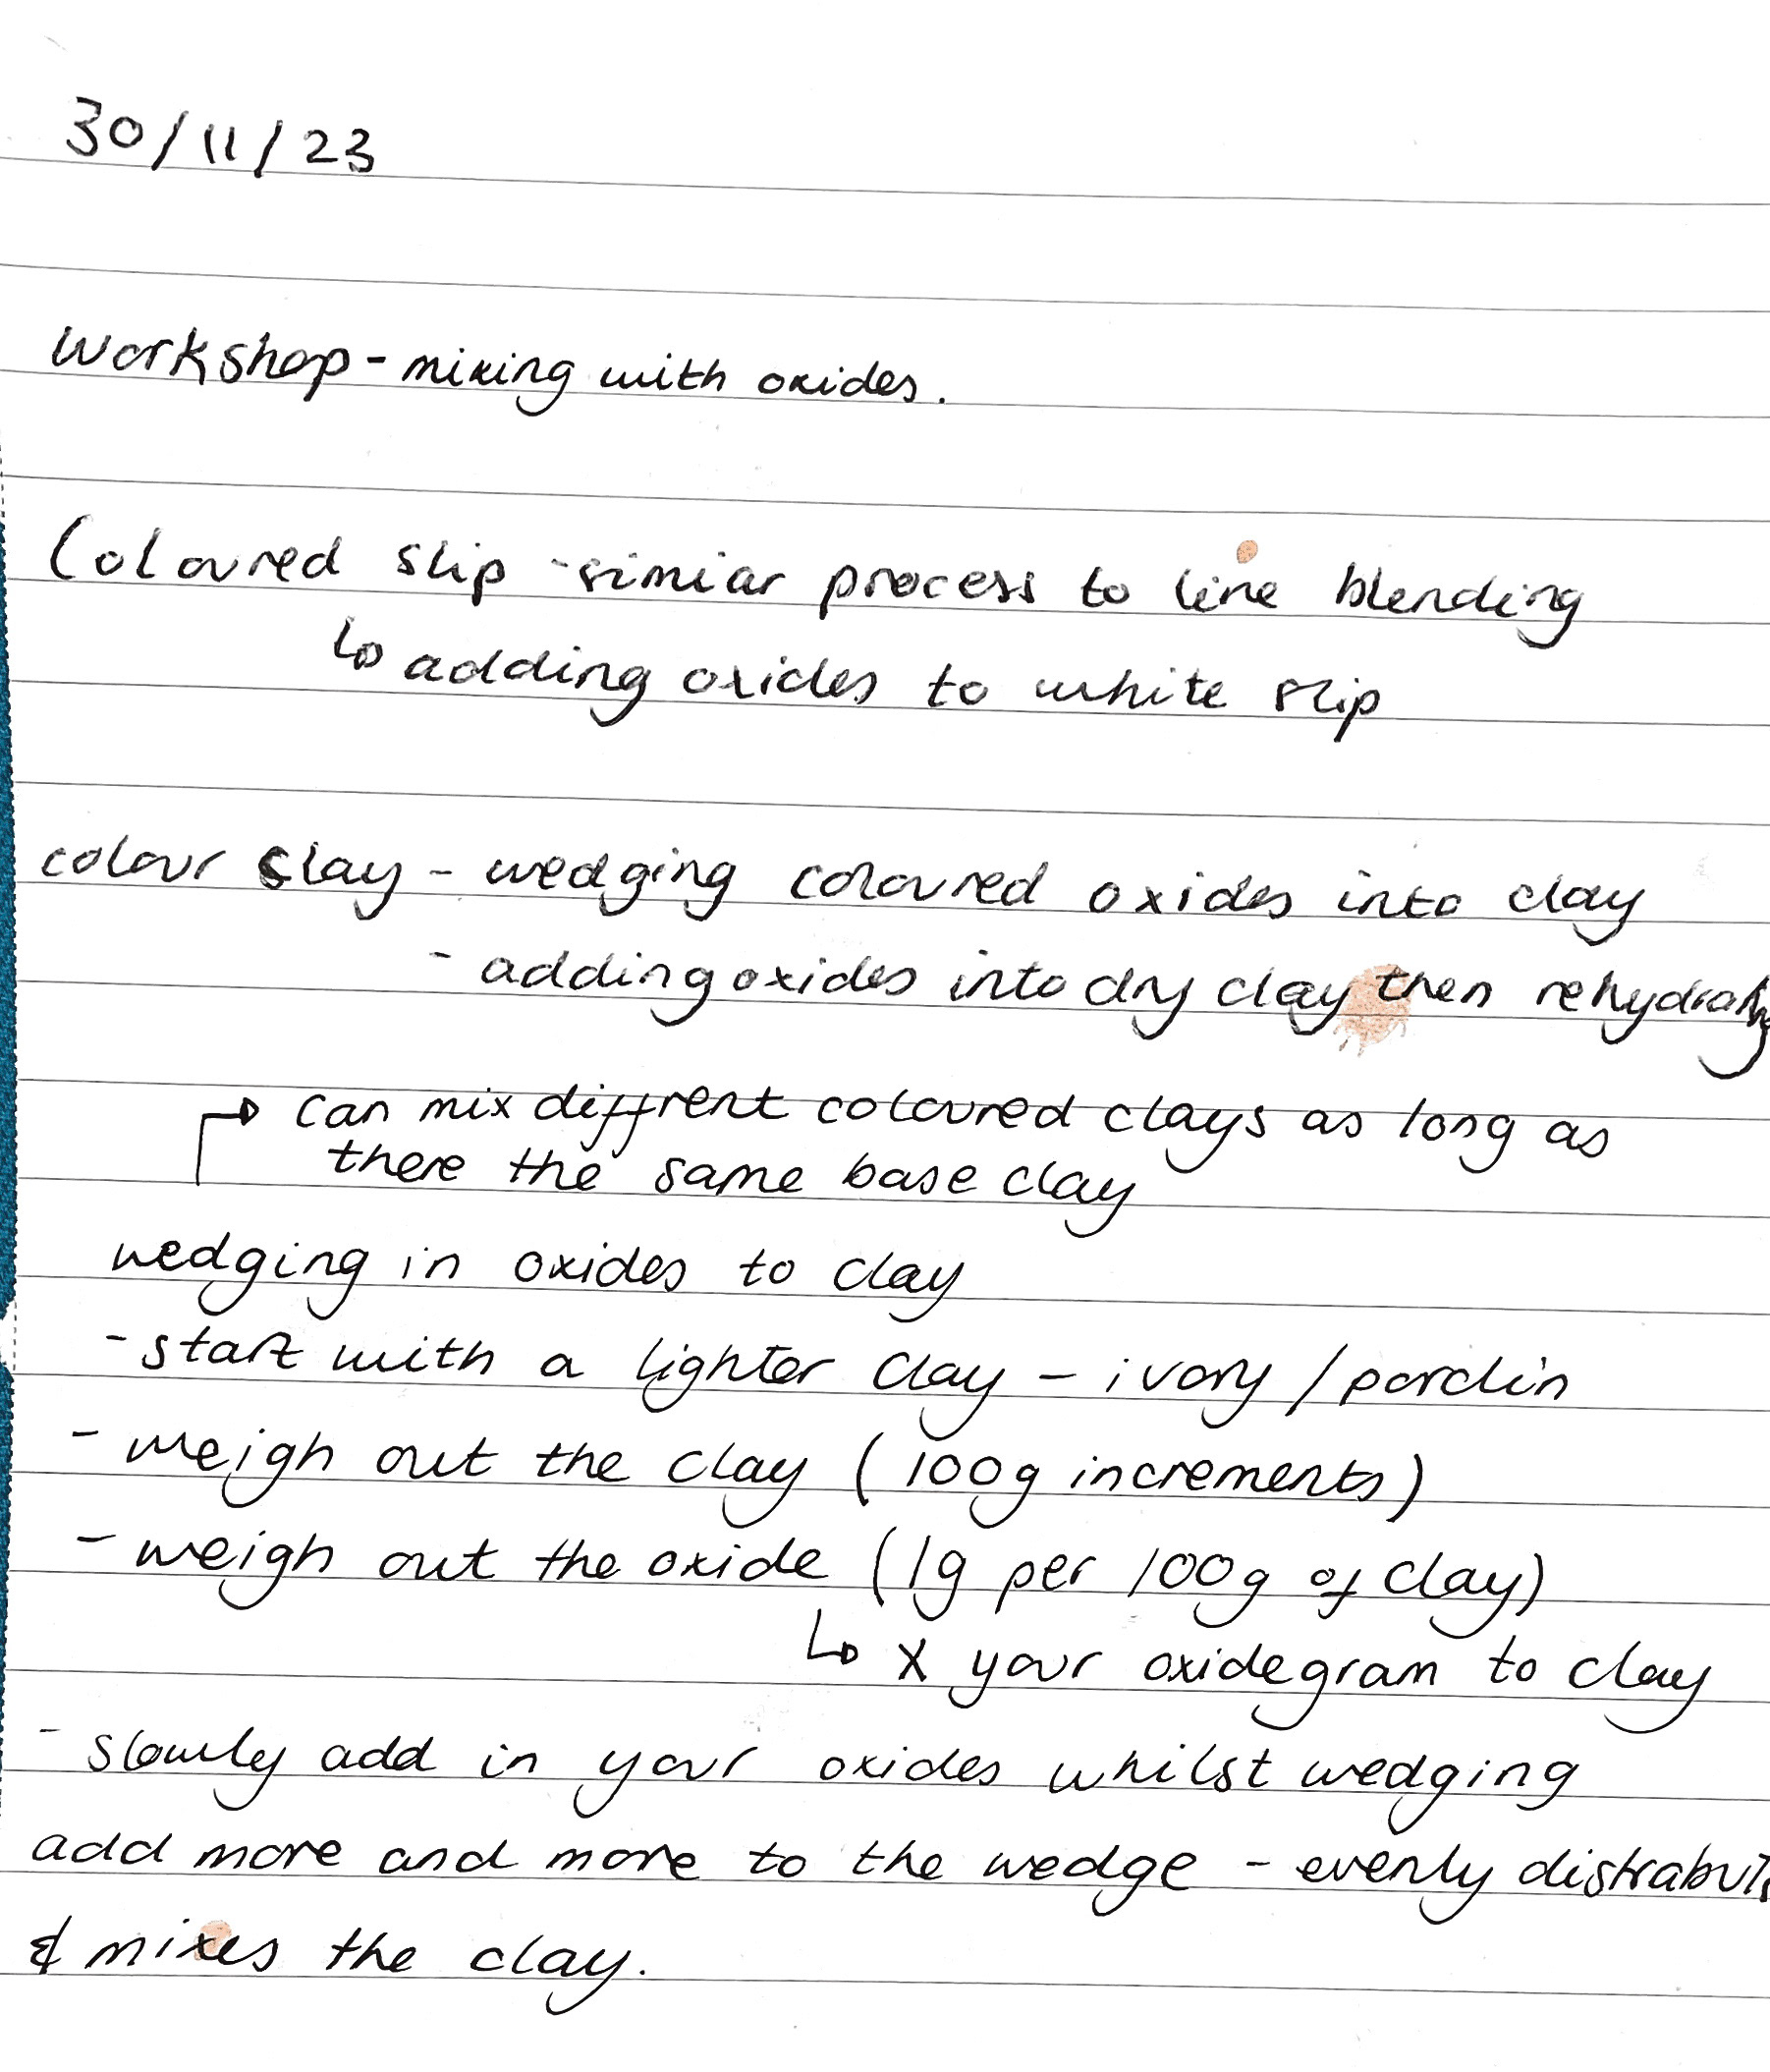 30/11/23
Workshop - mixing with oxides.
Coloured slip - simiar process to line blending
↳ adding oxides to white slip
colour clay - wedging coloured oxides into clay
- adding oxides into dry clay then rehydrating
→ can mix diffrent coloured clays as long as
there the same base clay
wedging in oxides to clay
- start with a lighter clay - ivory / porclin
- weigh out the clay (100g increments)
- weigh out the oxide (1g per 100g of clay)
↳ x your oxide gram to clay
- slowly add in your oxides whilst wedging
add more and more to the wedge - evenly
& mixes the clay.